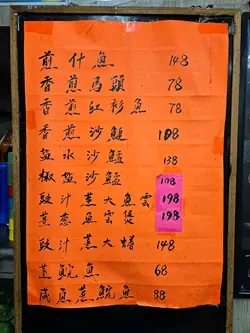 煎什魚 148
香煎馬頭 78
香煎紅衫魚 78
香煎沙鯭 108
鹽水沙鯭 138
椒鹽沙鯭 108
豉汁蒸大魚雲 198
薑葱魚雲煲 198
豉汁蒸大鱔 148
蒸鯇魚 68
咸魚蒸鯇魚 88